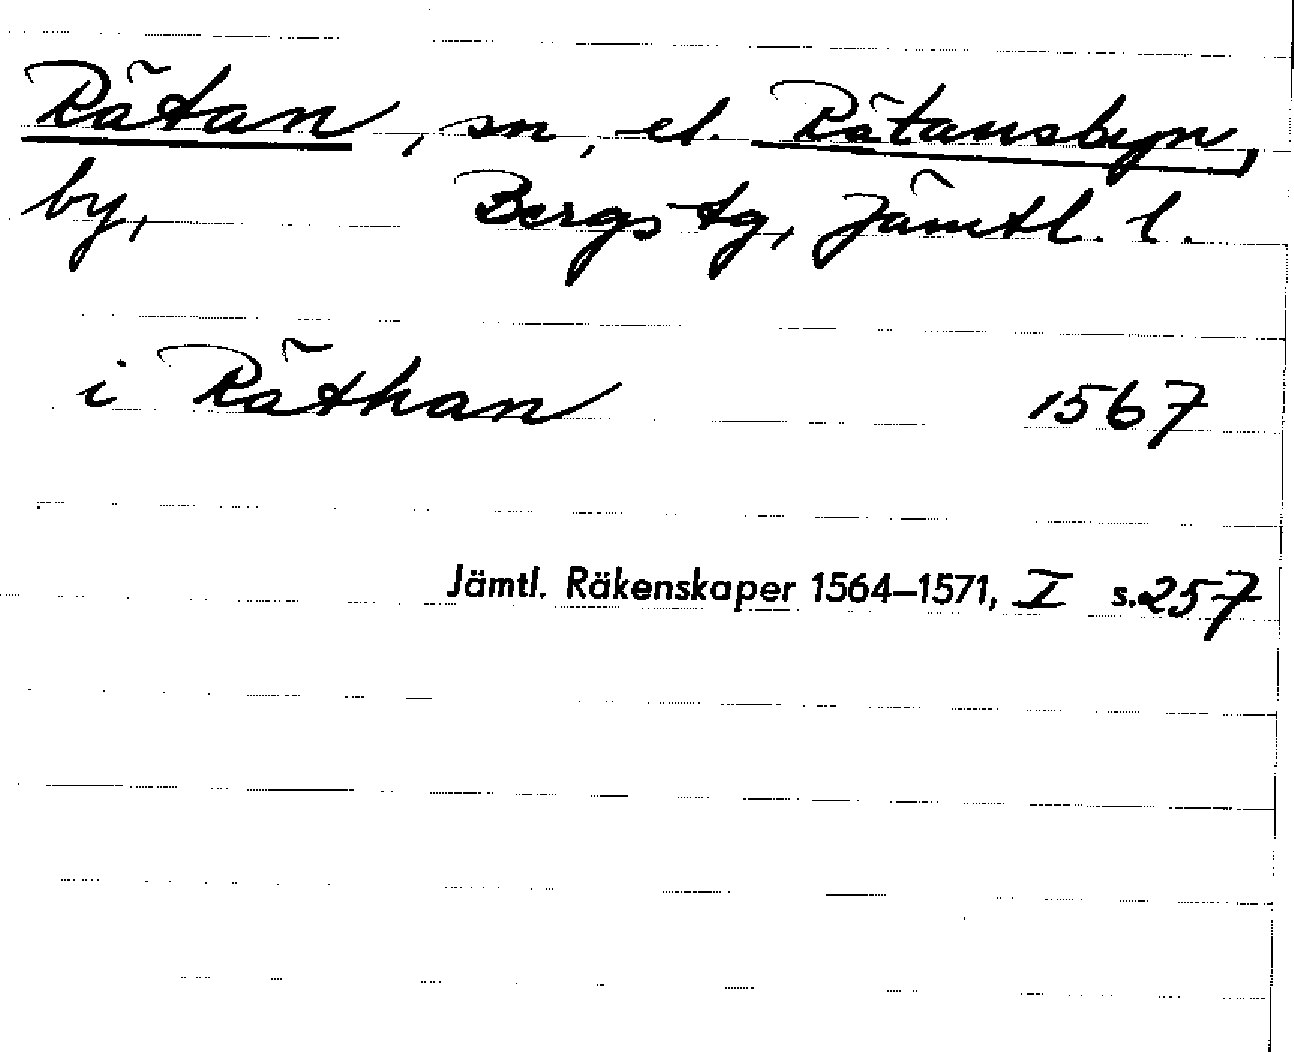 Rätan, sn, el. Rätansbyn,
by, Bergs tg, Jämtl. l.
i Räthan 1567
Jämtl. Räkenskaper 1564–1571, I s. 257